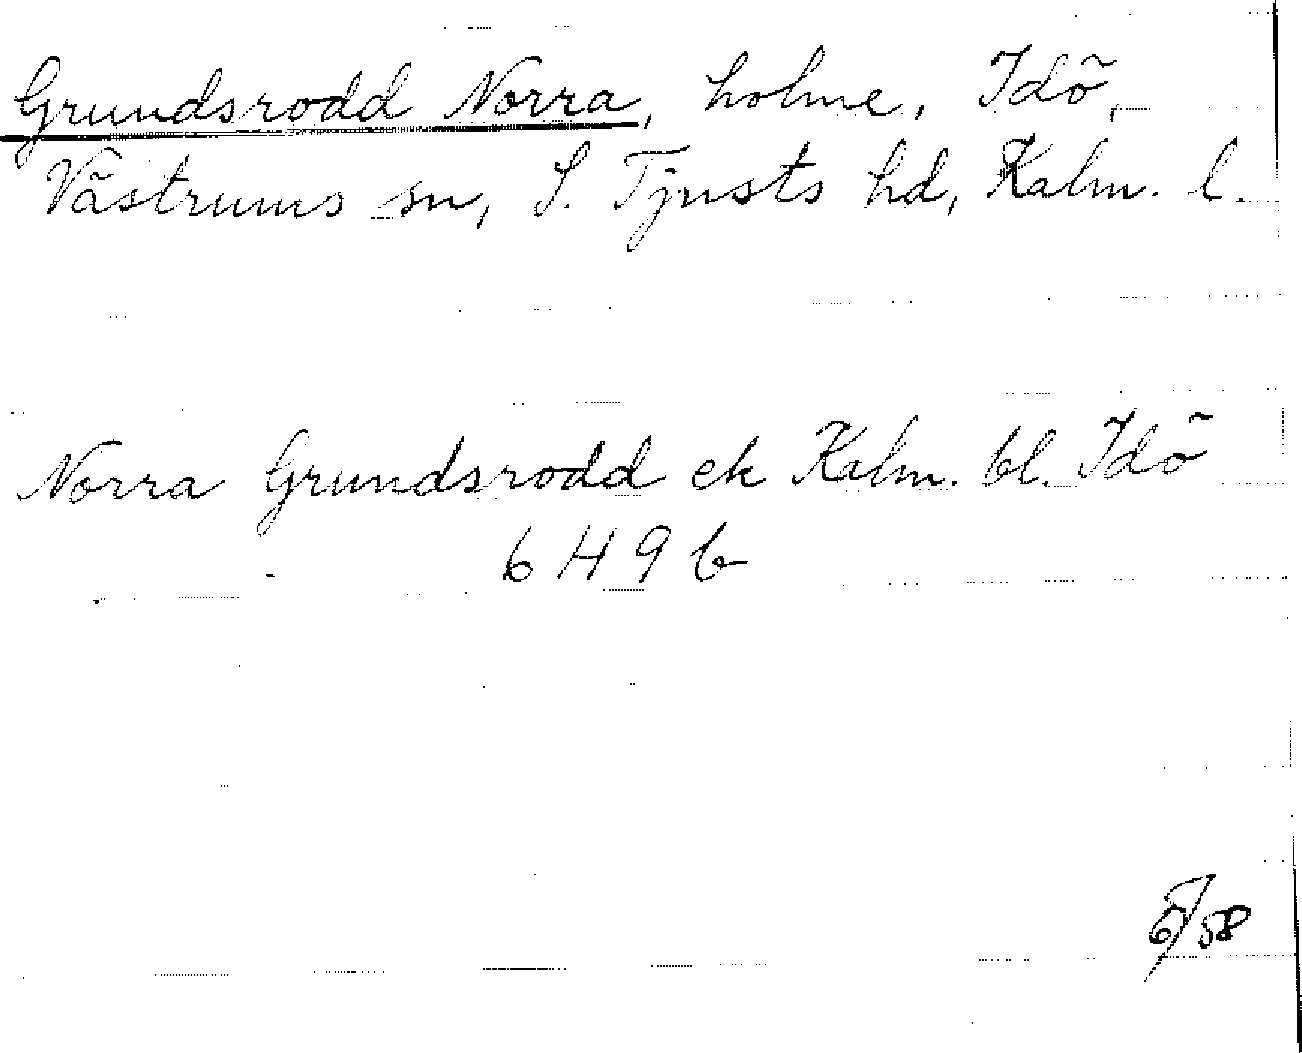 Grundsrodd Norra, holme, Idö,
Västrums sn, S. Tjusts hd, Kalm. l.
Norra Grundsrodd ek Kalm. bl. Idö
6 H 9 b